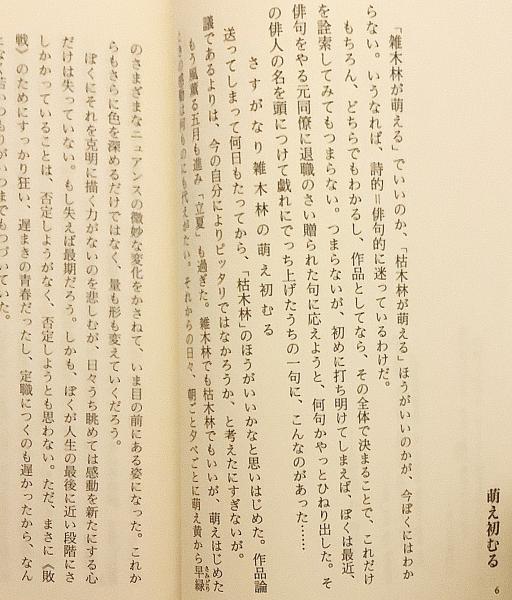 萌え初むる
6
「雑木林が萌える」でいいのか、「枯木林が萌える」ほうがいいのかが、今ぼくにはわか
らない。いうなれば、詩的＝俳句的に迷っているわけだ。
もちろん、どちらでもわかるし、作品としてなら、その全体で決まることで、これだけ
を詮索してみてもつまらない。つまらないが、初めに打ち明けてしまえば、ぼくは最近、
俳句をやる元同僚に退職のさい贈られた句に応えようと、何句かやっとひねり出した。そ
の俳人の名を頭につけて戯れにでっち上げたうちの一句に、こんなのがあった……
さすがなり雑木林の萌え初むる
送ってしまって何日もたってから、「枯木林」のほうがいいかなと思いはじめた。作品論
議であるよりは、今の自分によりピッタリではなかろうか、と考えたにすぎないが。
もう風薫る五月も進み「立夏」も過ぎた。雑木林でも枯木林でもいいが、萌えはじめた
ときの感動は何ものにも代えがたい。それからの日々、朝ごと夕べごとに萌え黄から早緑
さみどり
のさまざまなニュアンスの微妙な変化をかさねて、いま目の前にある姿になった。これか
らもさらに色を深めるだけではなく、量も形も変えていくだろう。
ぼくにそれを克明に描く力がないのを悲しむが、日々うち眺めては感動を新たにする心
だけは失っていない。もし失えば最期だろう。しかも、ぼくが人生の最後に近い段階にさ
しかかっていることは、否定しようがなく、否定しようとも思わない。ただ、まさに《敗
戦》のためにすっかり狂い、遅まきの青春だったし、定職につくのも遅かったから、なん
となく若いつもりがいつまでもつづいていた。